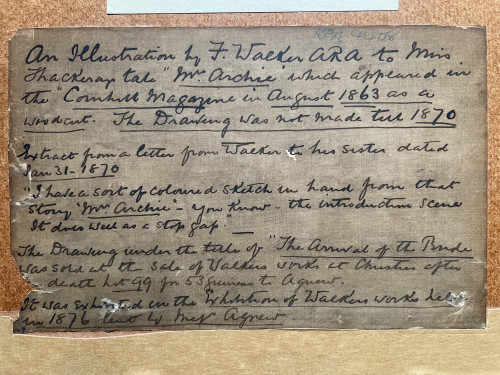 An Illustration by F. Walker ARA to Miss
Thackerays tale "Mrs Archie" which appeared in
the "Cornhill Magazine in August 1863 as a
woodcut. The Drawing was not made till 1870
Extract from a letter from Walker to his sister dated
Jan 31-1870
"I have a sort of coloured sketch in hand from that
story 'Mrs. Archie' - you know - the introduction scene
It does well as a stop gap."
The Drawing under the title of "The Arrival of the Bride
was sold at the sale of Walkers works at Christies after
death Lot 99 for 53 guineas to Agnew.
It was exhibited in the Exhibition of Walkers works held
in 1876 lent by Messrs Agnew